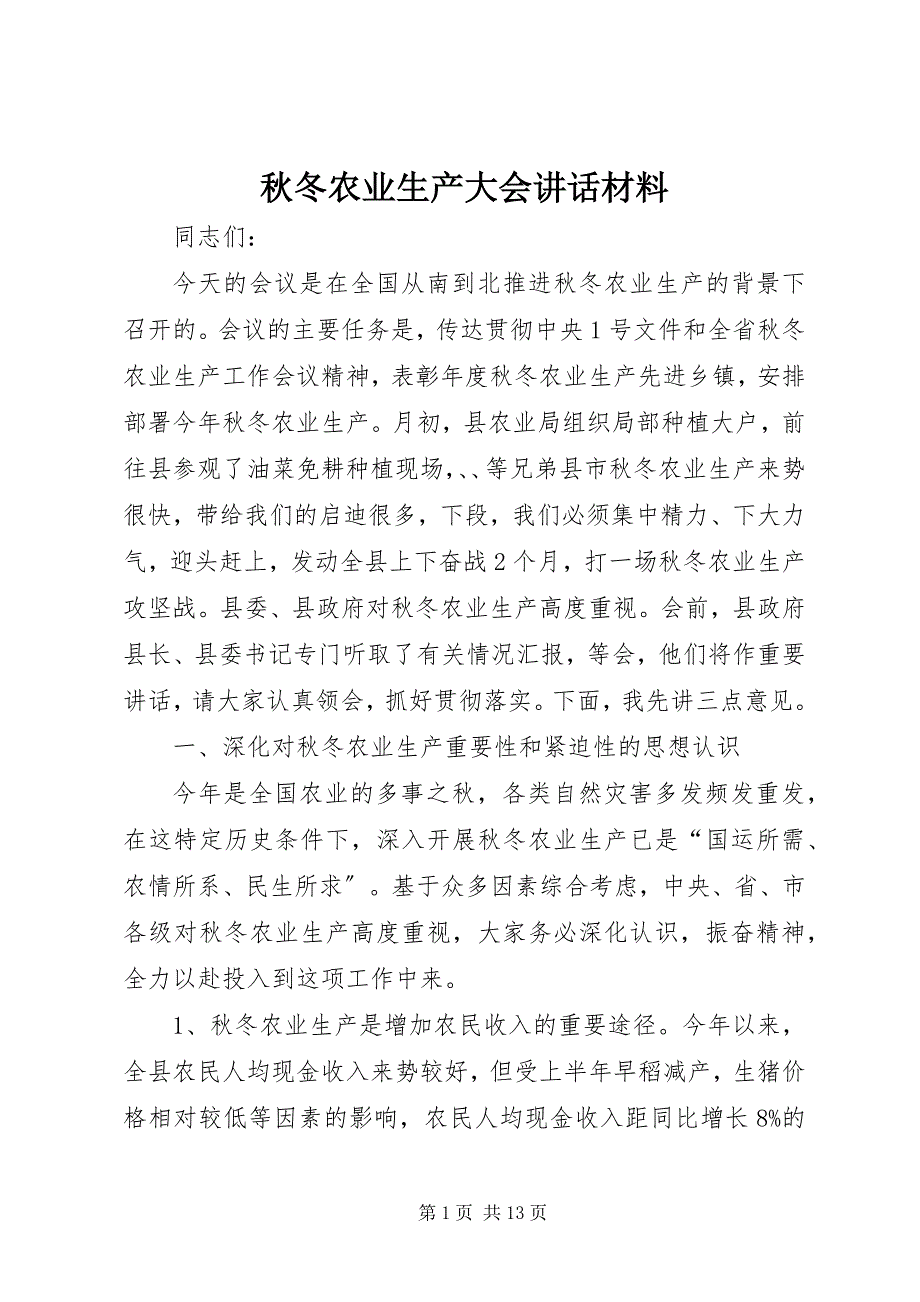 秋冬农业生产大会讲话材料
同志们：
今天的会议是在全国从南到北推进秋冬农业生产的背景下
召开的。会议的主要任务是，传达贯彻中央 1 号文件和全省秋冬
农业生产工作会议精神，表彰年度秋冬农业生产先进乡镇，安排
部署今年秋冬农业生产。月初，县农业局组织局部种植大户，前
往县参观了油菜免耕种植现场，、、等兄弟县市秋冬农业生产来势
很快，带给我们的启迪很多，下段，我们必须集中精力、下大力
气，迎头赶上，发动全县上下奋战 2 个月，打一场秋冬农业生产
攻坚战。县委、县政府对秋冬农业生产高度重视。会前，县政府
县长、县委书记专门听取了有关情况汇报，等会，他们将作重要
讲话，请大家认真领会，抓好贯彻落实。下面，我先讲三点意见。
一、深化对秋冬农业生产重要性和紧迫性的思想认识
今年是全国农业的多事之秋，各类自然灾害多发频发重发，
在这特定历史条件下，深入开展秋冬农业生产已是“国运所需、
农情所系、民生所求〞。基于众多因素综合考虑，中央、省、市
各级对秋冬农业生产高度重视，大家务必深化认识，振奋精神，
全力以赴投入到这项工作中来。
1、秋冬农业生产是增加农民收入的重要途径。今年以来，
全县农民人均现金收入来势较好，但受上半年早稻减产，生猪价
格相对较低等因素的影响，农民人均现金收入距同比增长 8%的
第 1 页 共 13 页